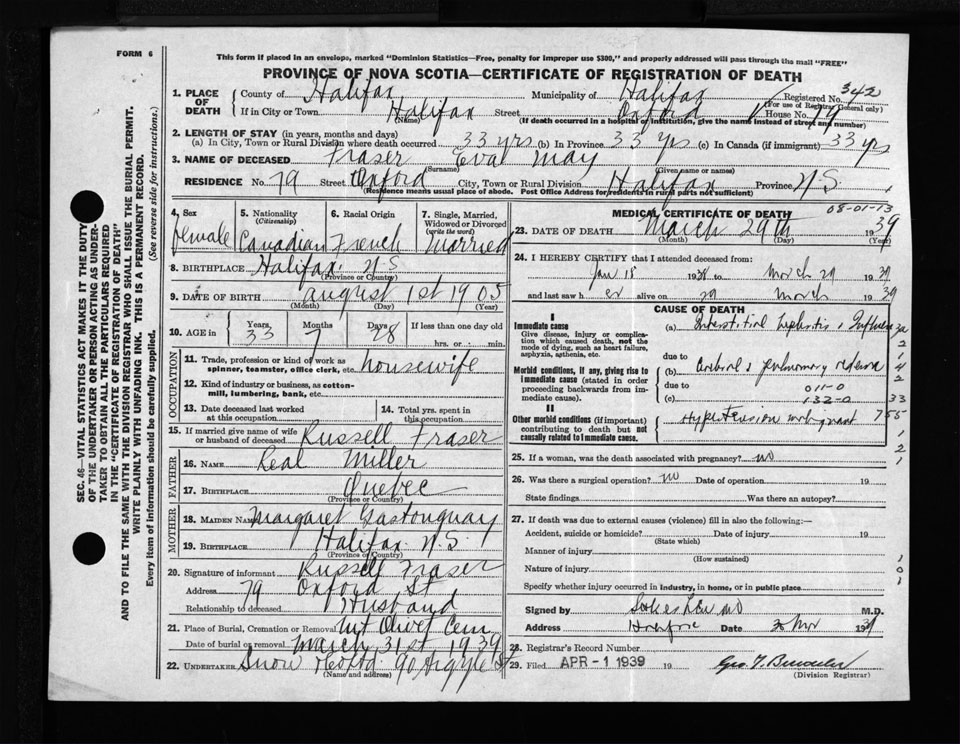 FORM 6
This form if placed in an envelope, marked "Dominion Statistics—Free, penalty for improper use $300," and properly addressed will pass through the mail "FREE"
PROVINCE OF NOVA SCOTIA—CERTIFICATE OF REGISTRATION OF DEATH
SEC. 46—VITAL STATISTICS ACT MAKES IT THE DUTY
OF THE UNDERTAKER OR PERSON ACTING AS UNDERTAKER TO OBTAIN ALL THE PARTICULARS REQUIRED
IN THE "CERTIFICATE OF REGISTRATION OF DEATH"
AND TO FILE THE SAME WITH THE DIVISION REGISTRAR WHO SHALL ISSUE THE BURIAL PERMIT.
WRITE PLAINLY WITH UNFADING INK. THIS IS A PERMANENT RECORD.
Every item of information should be carefully supplied. (See reverse side for instructions.)
1. PLACE OF DEATH County of Halifax Municipality of Halifax Registered No. 342
(For use of Registrar General only)
If in City or Town Halifax Street Oxford House No. 79
(If death occurred in a hospital or institution, give the name instead of street and number)
2. LENGTH OF STAY (in years, months and days)
(a) In City, Town or Rural Division where death occurred 33 yrs (b) In Province 33 yrs (c) In Canada (if immigrant) 33 yrs
3. NAME OF DECEASED Fraser Eva May
(Surname) (Given name or names)
RESIDENCE No. 79 Street Oxford City, Town or Rural Division Halifax Province N.S.
(Residence means usual place of abode. Post Office Address for residents in rural parts not sufficient)
4. Sex female
5. Nationality (Citizenship) Canadian
6. Racial Origin French
7. Single, Married, Widowed or Divorced (write the word) Married
8. BIRTHPLACE Halifax N S
(Province or Country)
9. DATE OF BIRTH august 1st 1905
(Month) (Day) (Year)
10. AGE in Years 33 Months 7 Days 28 If less than one day old
hrs. or min.
OCCUPATION
11. Trade, profession or kind of work as spinner, teamster, office clerk, etc. housewife
12. Kind of industry or business, as cotton-mill, lumbering, bank, etc.
13. Date deceased last worked at this occupation
14. Total yrs. spent in this occupation
15. If married give name of wife or husband of deceased Russell Fraser
FATHER
16. NAME Real Miller
17. BIRTHPLACE Quebec
(Province or Country)
MOTHER
18. MAIDEN NAME Margaret Gastonguay
19. BIRTHPLACE Halifax N.S.
(Province or Country)
20. Signature of informant Russell Fraser
Address 79 Oxford St
Relationship to deceased Husband
21. Place of Burial, Cremation or Removal Mt Olivet Cem
Date of burial or removal March 31st 1939
22. UNDERTAKER Snow 90 Argyle St
(Name and address)
MEDICAL CERTIFICATE OF DEATH
08-01-13
23. DATE OF DEATH March 29th 1939
(Month) (Day) (Year)
24. I HEREBY CERTIFY that I attended deceased from:
Jan 18 19 to March 29 1939
and last saw her alive on 29 March 1939
CAUSE OF DEATH
I
Immediate cause
Give disease, injury or complication which caused death, not the mode of dying, such as heart failure, asphyxia, asthenia, etc.
(a) Interstitial Nephritis & Influenza
due to
Morbid conditions, if any, giving rise to immediate cause (stated in order proceeding backwards from immediate cause).
(b) Cerebral & pulmonary
due to 011-0
(c) 132-0 33
II
Other morbid conditions (if important) contributing to death but not causally related to immediate cause.
Hypertension malignant
25. If a woman, was the death associated with pregnancy? no
26. Was there a surgical operation? no Date of operation 19
State findings Was there an autopsy?
27. If death was due to external causes (violence) fill in also the following:—
Accident, suicide or homicide? Date of injury 19
(State which)
Manner of injury
(How sustained)
Nature of injury
Specify whether injury occurred in industry, in home, or in public place
Signed by M.D.
Address Halifax Date 30 Mar 1939
28. Registrar's Record Number
29. Filed APR - 1 1939 19
(Division Registrar)